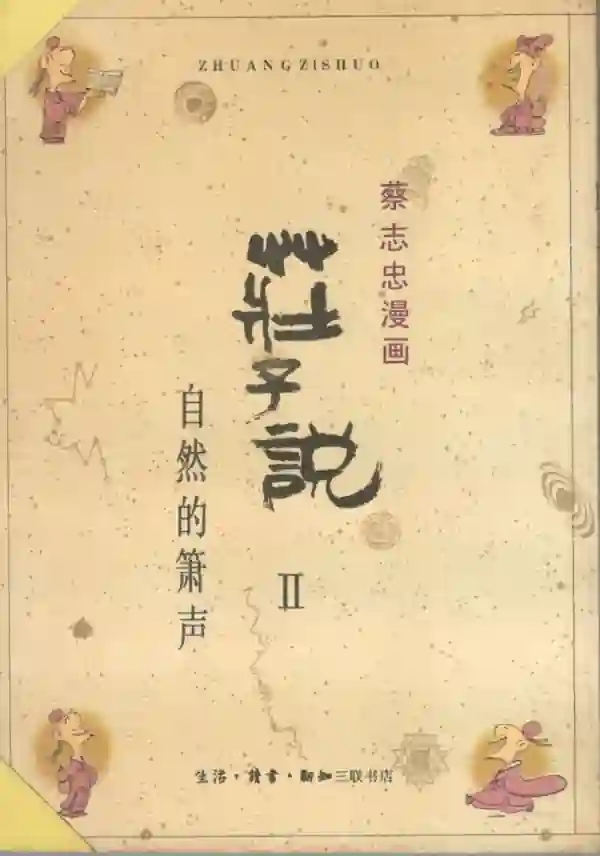 ZHUANGZISHUO
蔡志忠漫画
莊子説
II
自然的箫声
生活·讀書·新知三联书店